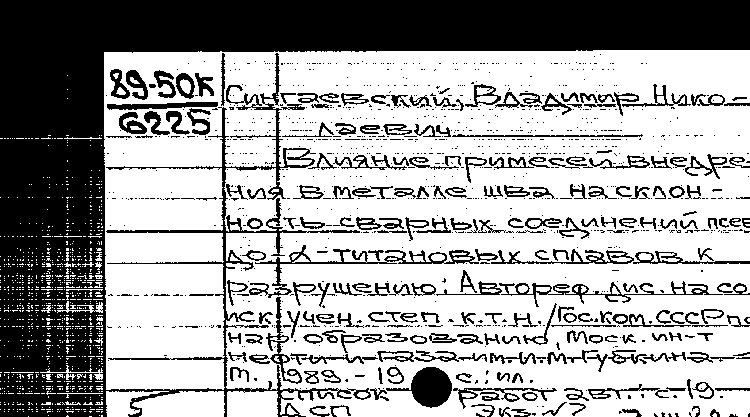 89-50К
6225
Сингаевский, Владимир Нико-
лаевич
Влияние примесей внедре
ния в металле шва на склон-
ность сварных соединений псев
до-α-титановых сплавов к
разрушению: Автореф. дис. на со
иск. учен. степ. к.т.н. / Гос. ком. СССР по
нар. образованию, Моск. ин-т
нефти и газа им. И.М. Губкина. -
М., 1989. - 19 с.: ил.
Список работ авт.: с. 19.
5 ДСП Экз. №